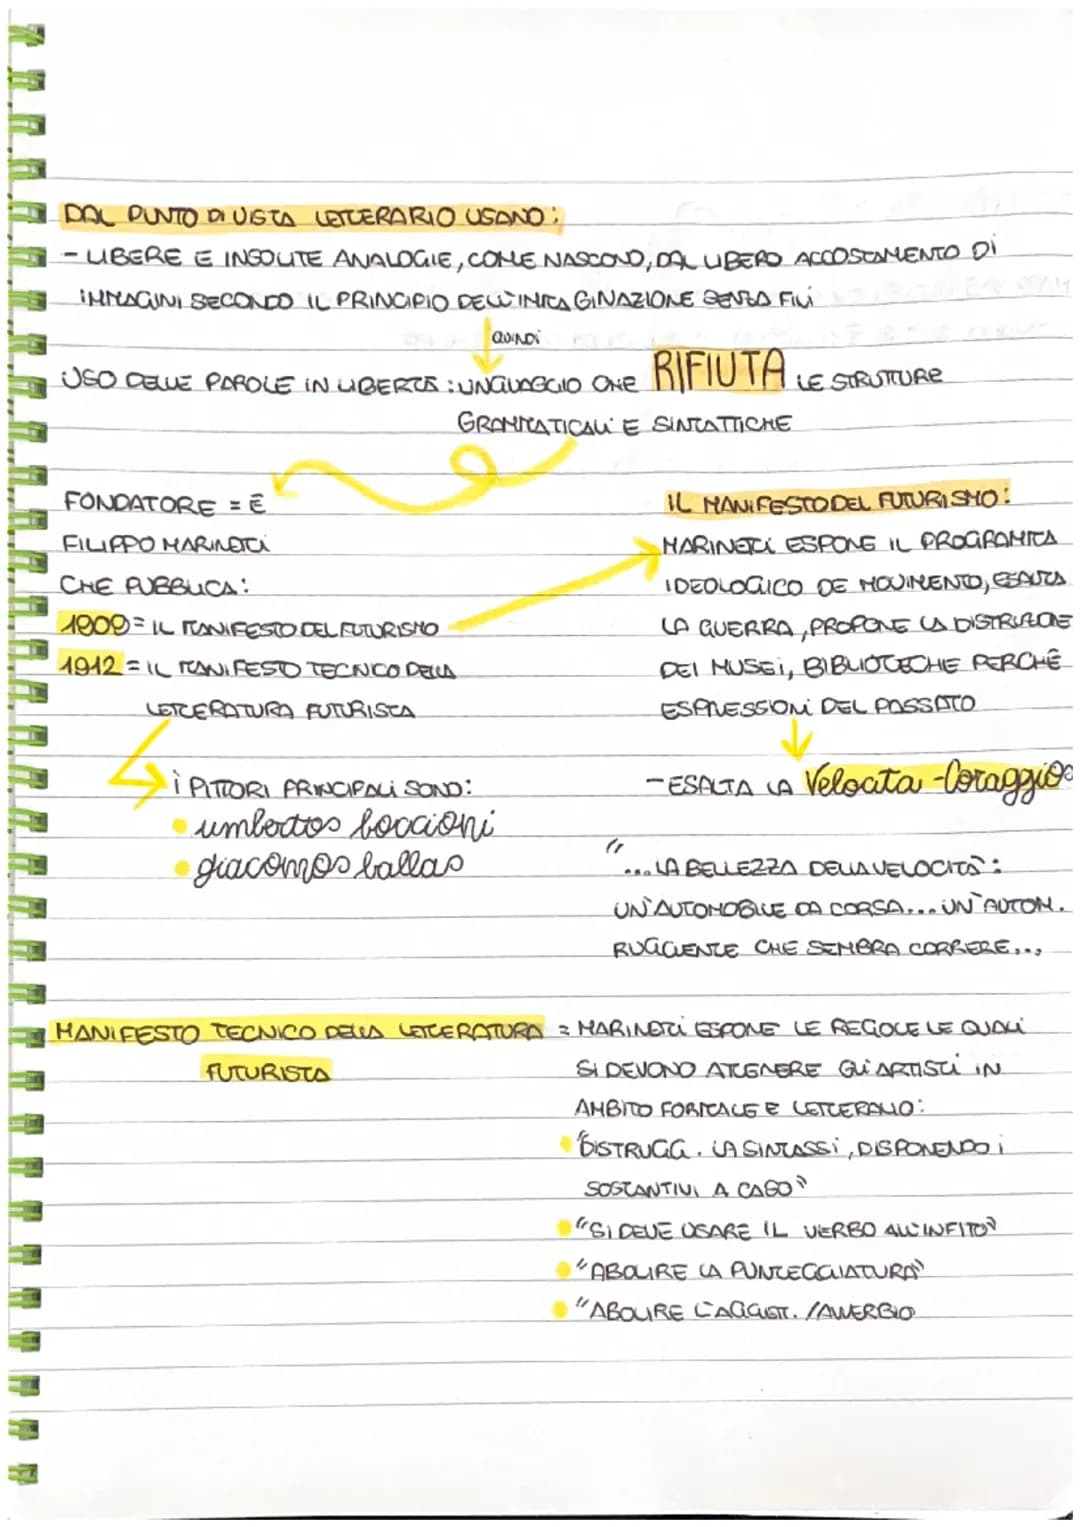 DAL PUNTO DI VISTA LETTERARIO USANO:
- LIBERE E INSOLITE ANALOGIE, COME NASCONO, DAL LIBERO ACCOSTAMENTO DI
IMMAGINI SECONDO IL PRINCIPIO DELL'IMMAGINAZIONE SENZA FILI
QUINDI
USO DELLE PAROLE IN LIBERTÀ: LINGUAGGIO CHE RIFIUTA LE STRUTTURE
GRAMMATICALI E SINTATTICHE
FONDATORE = È
FILIPPO MARINETTI
CHE PUBBLICA:
1909 = IL MANIFESTO DEL FUTURISMO
1912 = IL MANIFESTO TECNICO DELLA
LETTERATURA FUTURISTA
i PITTORI PRINCIPALI SONO:
• umbertos boccioni
• giacomos ballas
IL MANIFESTO DEL FUTURISMO:
MARINETTI ESPONE IL PROGRAMMA
IDEOLOGICO DE MOVIMENTO, ESALTA
LA GUERRA, PROPONE LA DISTRUZIONE
DEI MUSEI, BIBLIOTECHE PERCHÈ
ESPRESSIONI DEL PASSATO
- ESALTA LA Velocita - Coraggio
"... LA BELLEZZA DELLA VELOCITÀ:
UN'AUTOMOBILE DA CORSA... UN'AUTOM.
RUGGENTE CHE SEMBRA CORRERE...
MANIFESTO TECNICO DELLA LETTERATURA = MARINETTI ESPONE LE REGOLE LE QUALI
FUTURISTA SI DEVONO ATTENERE GLI ARTISTI IN
AMBITO FORMALE E LETTERARIO:
• "DISTRUGG. LA SINTASSI, DISPONENDO i
SOSTANTIVI A CASO"
• "SI DEVE USARE IL VERBO ALL'INFITO"
• "ABOLIRE LA PUNTEGGIATURA"
• "ABOLIRE L'AGGIET. /AVVERBIO